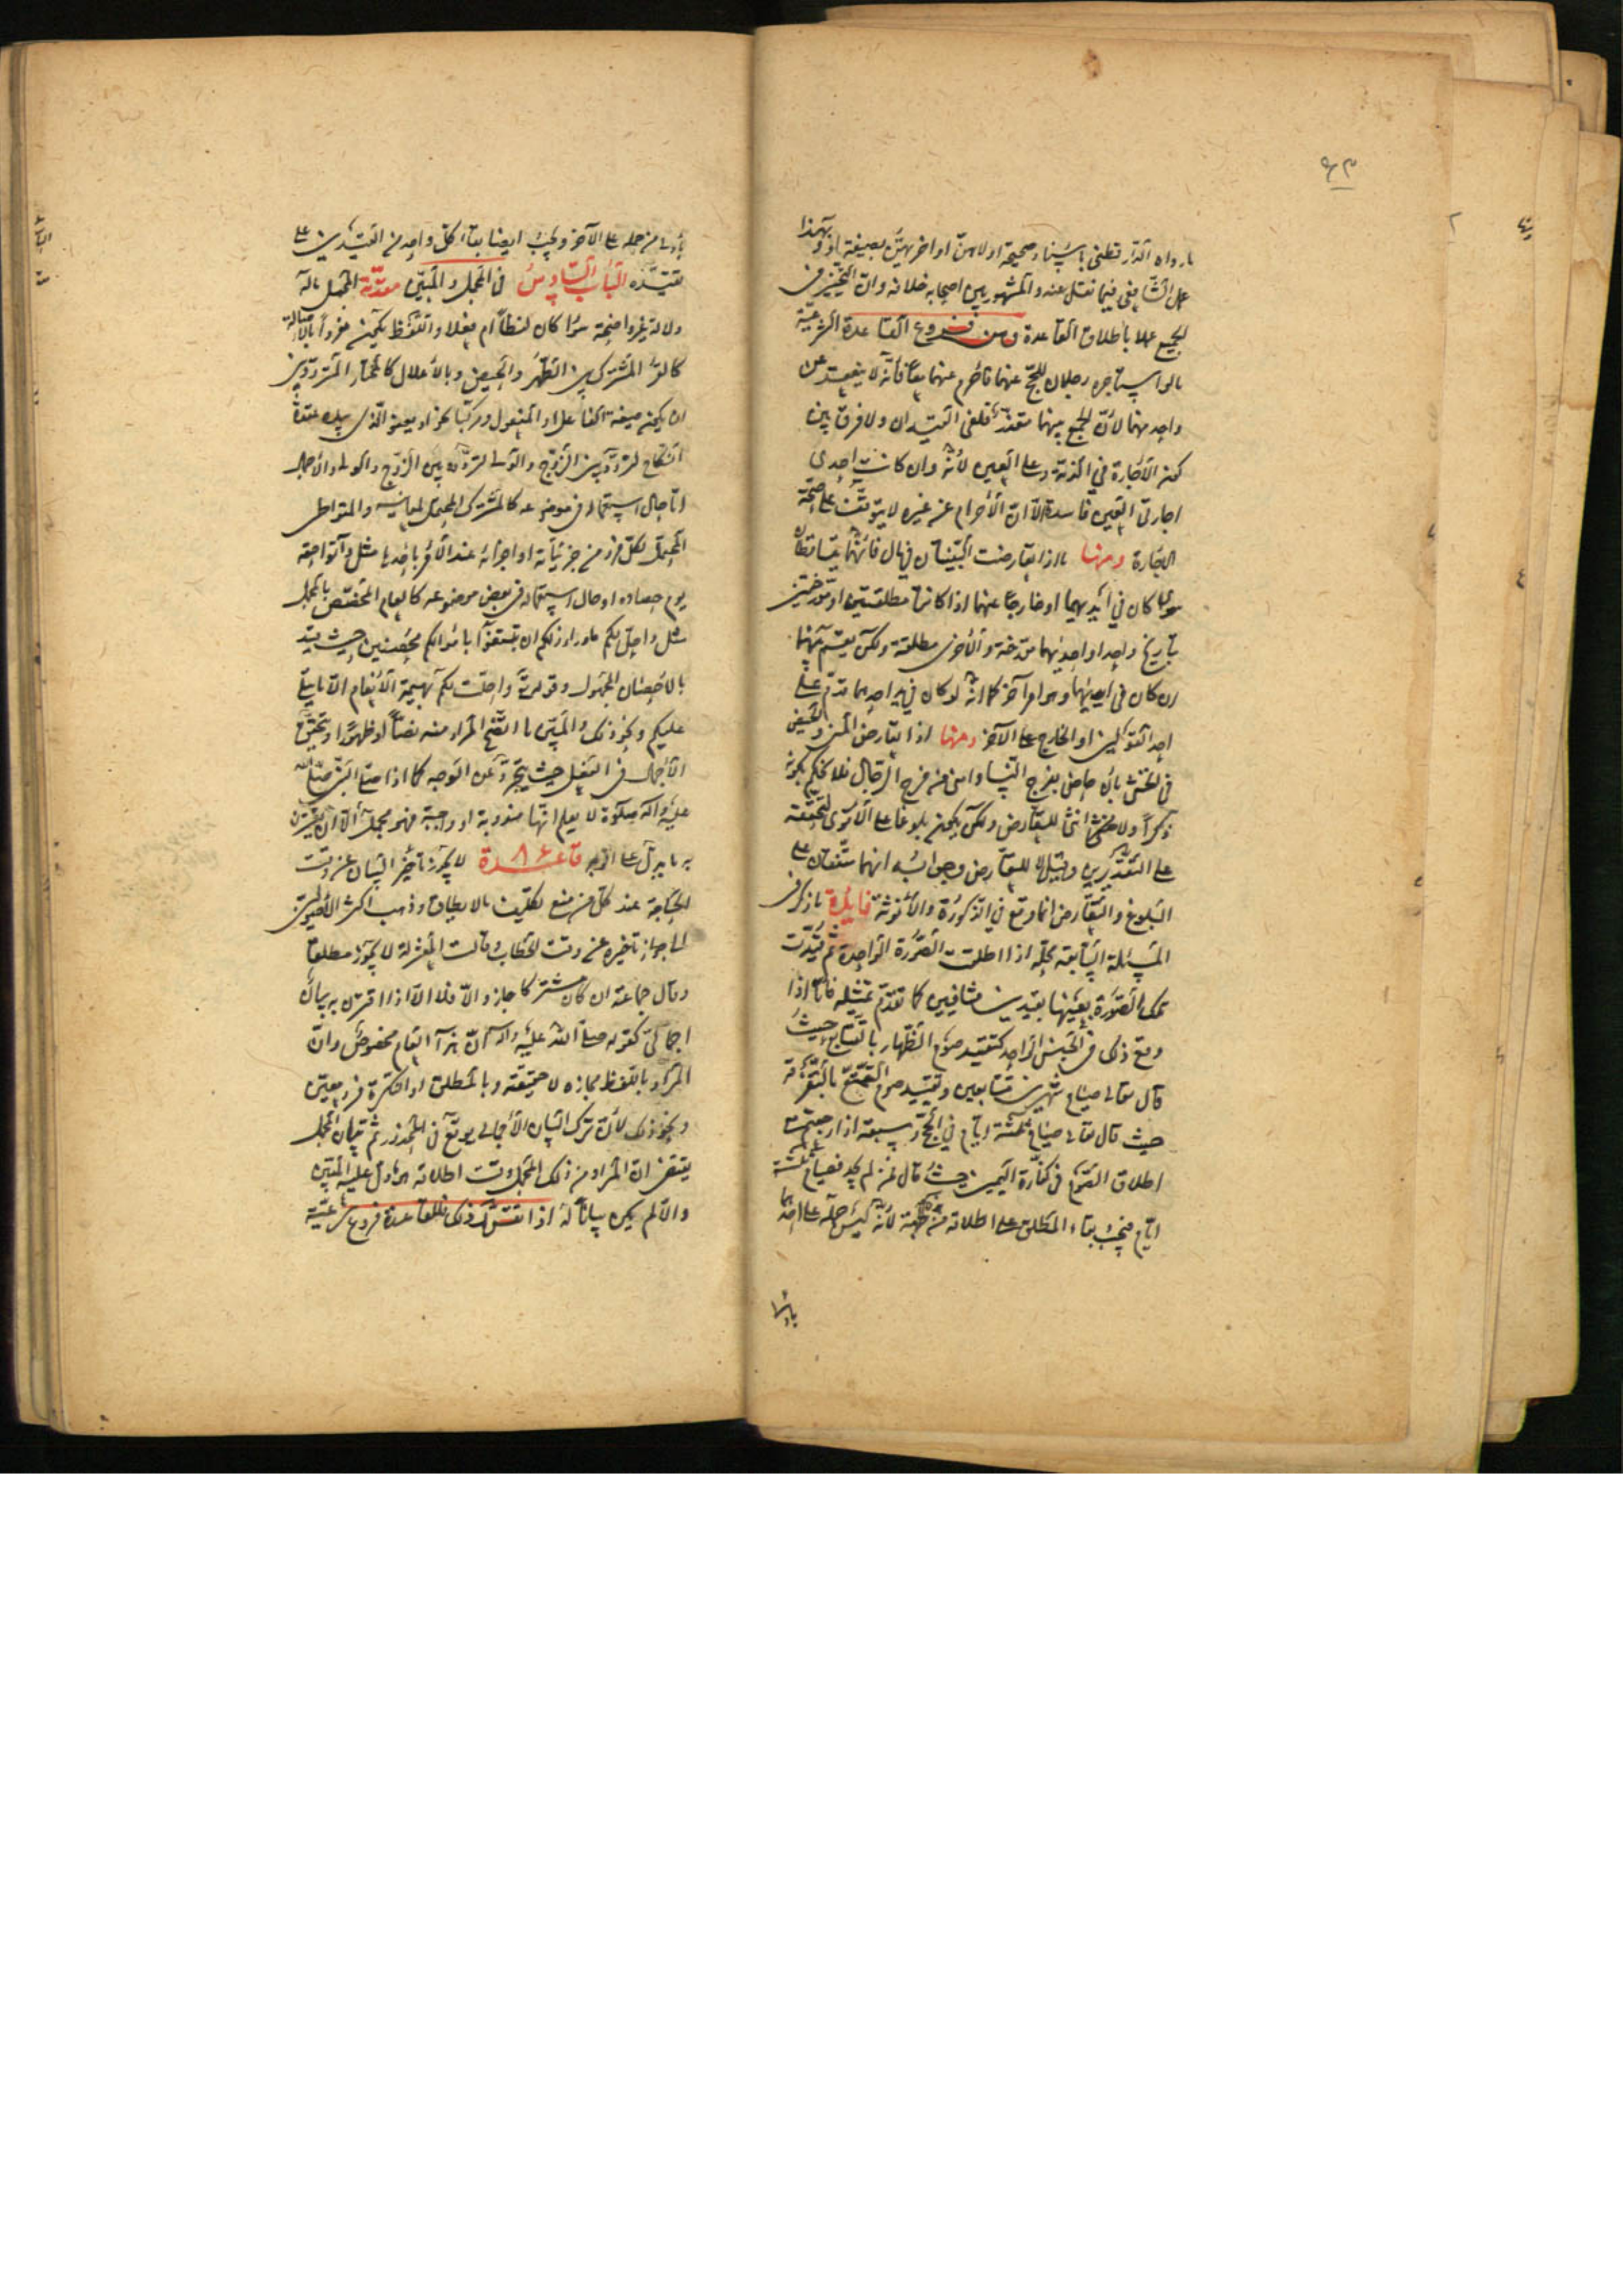 ٦٣
ما رواه الدار قطنى باسناد صحيحة اولاهن او اخريهن بصيغة او وبهذا
عمل الشافعى فيما نقل عنه والمشهور بين اصحابه خلافه وان التخيير فى
الجميع عملا باطلاق القاعدة ومن فروع القاعدة الشرعية
ما لو استاجره رجلان للحج عنهما فاحرم عنهما معا فانه لا ينعقد عن
واحد منهما لان الجمع بينهما متعذر فلغى القيدان ولا فرق بين
كون الاجارة فى الذمة وعلى العين لانه وان كانت احدى
اجارتى العين فاسدة الا ان الاحرام عن غيره لا يتوقف على صحة
الاجارة ومنها ما اذا تعارضت البينتان فى مال فانهما يتساقطان
سواء كان فى ايديهما او خارجا عنهما اذا كانتا مطلقتين او مؤرختين
بتاريخ واحد او احديهما مؤرخة والاخرى مطلقة ولكن يقسم بينهما
ان كان فى ايديهما وهو امر آخر كما انه لو كان فى يد احدهما قدم على
احد القولين او الخارج على الآخر ومنها اذا تعارض المنى والحيض
فى الخنثى بان حاض بفرج النساء وامنى من فرج الرجال فلا نحكم بكونه
ذكرا ولا انثى للتعارض ولكن يكون بلوغا على الاقوى لتحققه
على التقديرين وقيل لا للتعارض وجوابه انهما متفقان على
البلوغ والتعارض انما وقع فى الذكورة والانوثة فايدة ما ذكر فى
المسئلة السابقة محله اذا اطلقت الصورة الواحدة ثم قيدت
تلك الصورة بعينها بقيدين متنافيين كما تقدم تمثيله فاما اذا
وقع ذلك فى الجنس الواحد كتقييد صوم الظهار بالتتابع حيث
قال تعالى صيام شهرين متتابعين وتقييد صوم التمتع بالتفرقة
حيث قال تعالى صيام ثلثة ايام فى الحج وسبعة اذا رجعتم مع
اطلاق الصوم فى كفارة اليمين حيث قال فمن لم يجد فصيام ثلثة
ايام فيجب بقاء المطلق على اطلاقه من جهة لانه ليس حمله على احدهما
باولى
باولى من حمله على الآخر ويجب ايضا بقاء كل واحد من القيدين على
تقييده الباب السادس فى المجمل والمبين مقدمة المجمل ما له
دلالة غير واضحة سواء كان لفظا ام فعلا واللفظ يكون مفردا بالاصالة
كالقرء المشترك بين الطهر والحيض وبالاعلال كالمختار المتردد بين
ان يكون صيغة الفاعل او المفعول ومركبا نحو او يعفو الذى بيده عقدة
النكاح لتردده بين الزوج والولى لتردده بين الزوج والولى والاجمال
اما حال استعماله فى موضوعه كالمشترك المحتمل لمعانيه والمتواطى
المحتمل لكل فرد من جزئياته او اجزائه عند الامر باحدها مثل وآتوا حقه
يوم حصاده او حال استعماله فى بعض موضوعه كالعام المخصص بالمجمل
مثل واحل لكم ما وراء ذلكم ان تبتغوا باموالكم محصنين حيث قيد
بالاحصان المجهول وقوله تعالى واحلت لكم بهيمة الانعام الا ما يتلى
عليكم ونحو ذلك والمبين ما اتضح المراد منه نصا او ظهورا ويتحقق
الاجمال فى الفعل حيث يتجرد عن الوجه كما اذا صلى النبى صلى الله
عليه وآله صلوة لا يعلم انها مندوبة او واجبة فهو مجمل الا ان يقترن
به ما يدل على الوجه قاعدة لا يجوز تاخير البيان عن وقت
الحاجة عند كل من منع تكليف ما لا يطاق وذهب اكثر الاصوليين
الى جواز تاخيره عن وقت الخطاب وقالت المعتزلة لا يجوز مطلقا
وقال جماعة ان كان مشتركا جاز والا فلا الا اذا اقترن به بيان
اجمالى كقوله صلى الله عليه وآله ان هذا العام مخصوص وان
المراد باللفظ مجازه لا حقيقته وبالمطلق او النكرة فرد معين
ونحو ذلك لان ترك البيان الاجمالى يوقع فى المحذور ثم بيان المجمل
يقتضى ان المراد من ذلك المجمل وقت اطلاقه هو ما دل عليه المبين
والا لم يكن بيانا له اذا تقرر ذلك فللقاعدة فروع شرعية